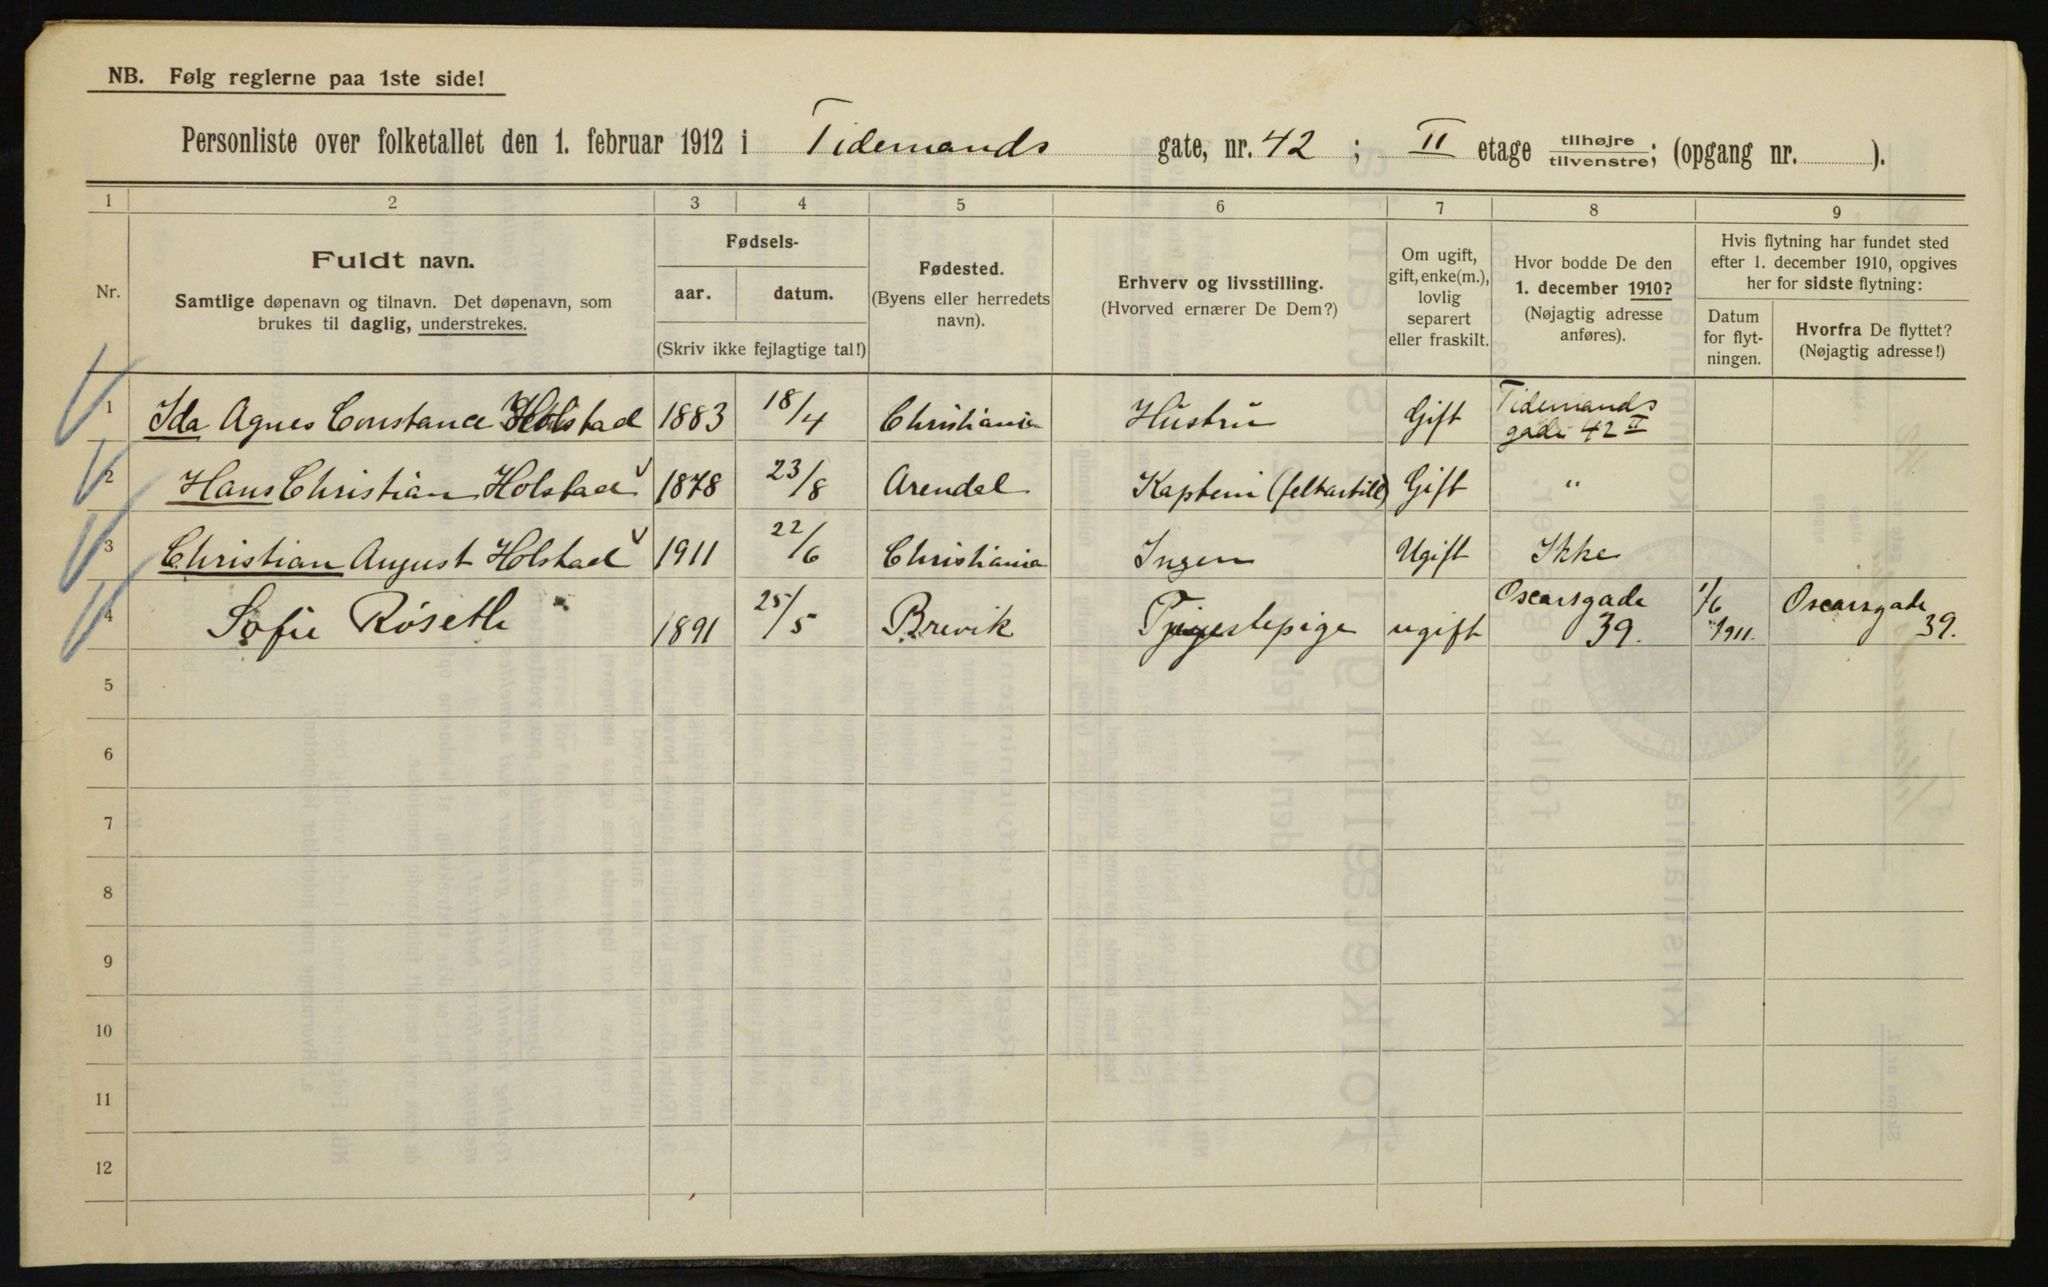 NB. Følg reglerne paa 1ste side!
Personliste over folketallet den 1. februar 1912 i Tidemands gate, nr. 42 ; II etage tilhøjre/tilvenstre; (opgang nr. ).
1 2 3 4 5 6 7 8 9
Nr.
Fuldt navn.
Samtlige døpenavn og tilnavn. Det døpenavn, som
brukes til daglig, understrekes.
Fødsels-
aar. datum.
(Skriv ikke fejlagtige tal!)
Fødested.
(Byens eller herredets
navn).
Erhverv og livsstilling.
(Hvorved ernærer De Dem?)
Om ugift,
gift, enke(m.),
lovlig
separert
eller fraskilt.
Hvor bodde De den
1. december 1910?
(Nøjagtig adresse
anføres).
Hvis flytning har fundet sted
efter 1. december 1910, opgives
her for sidste flytning:
Datum
for flyt-
ningen.
Hvorfra De flyttet?
(Nøjagtig adresse!)
1 Ida Agnes Constance Holstad 1883 18/4 Christiania Hustru Gift Tidemands
gade 42 II
2 Hans Christian Holstad 1878 23/8 Arendal Kaptein (feltartill) Gift "
3 Christian August Holstad 1911 22/6 Christiania Ingen Ugift Ikke
4 Sofie Røseth 1891 25/5 Brevik Tjenestepige ugift Oscarsgade
39. 1/6
1911. Oscarsgade
39.
5
6
7
8
9
10
11
12